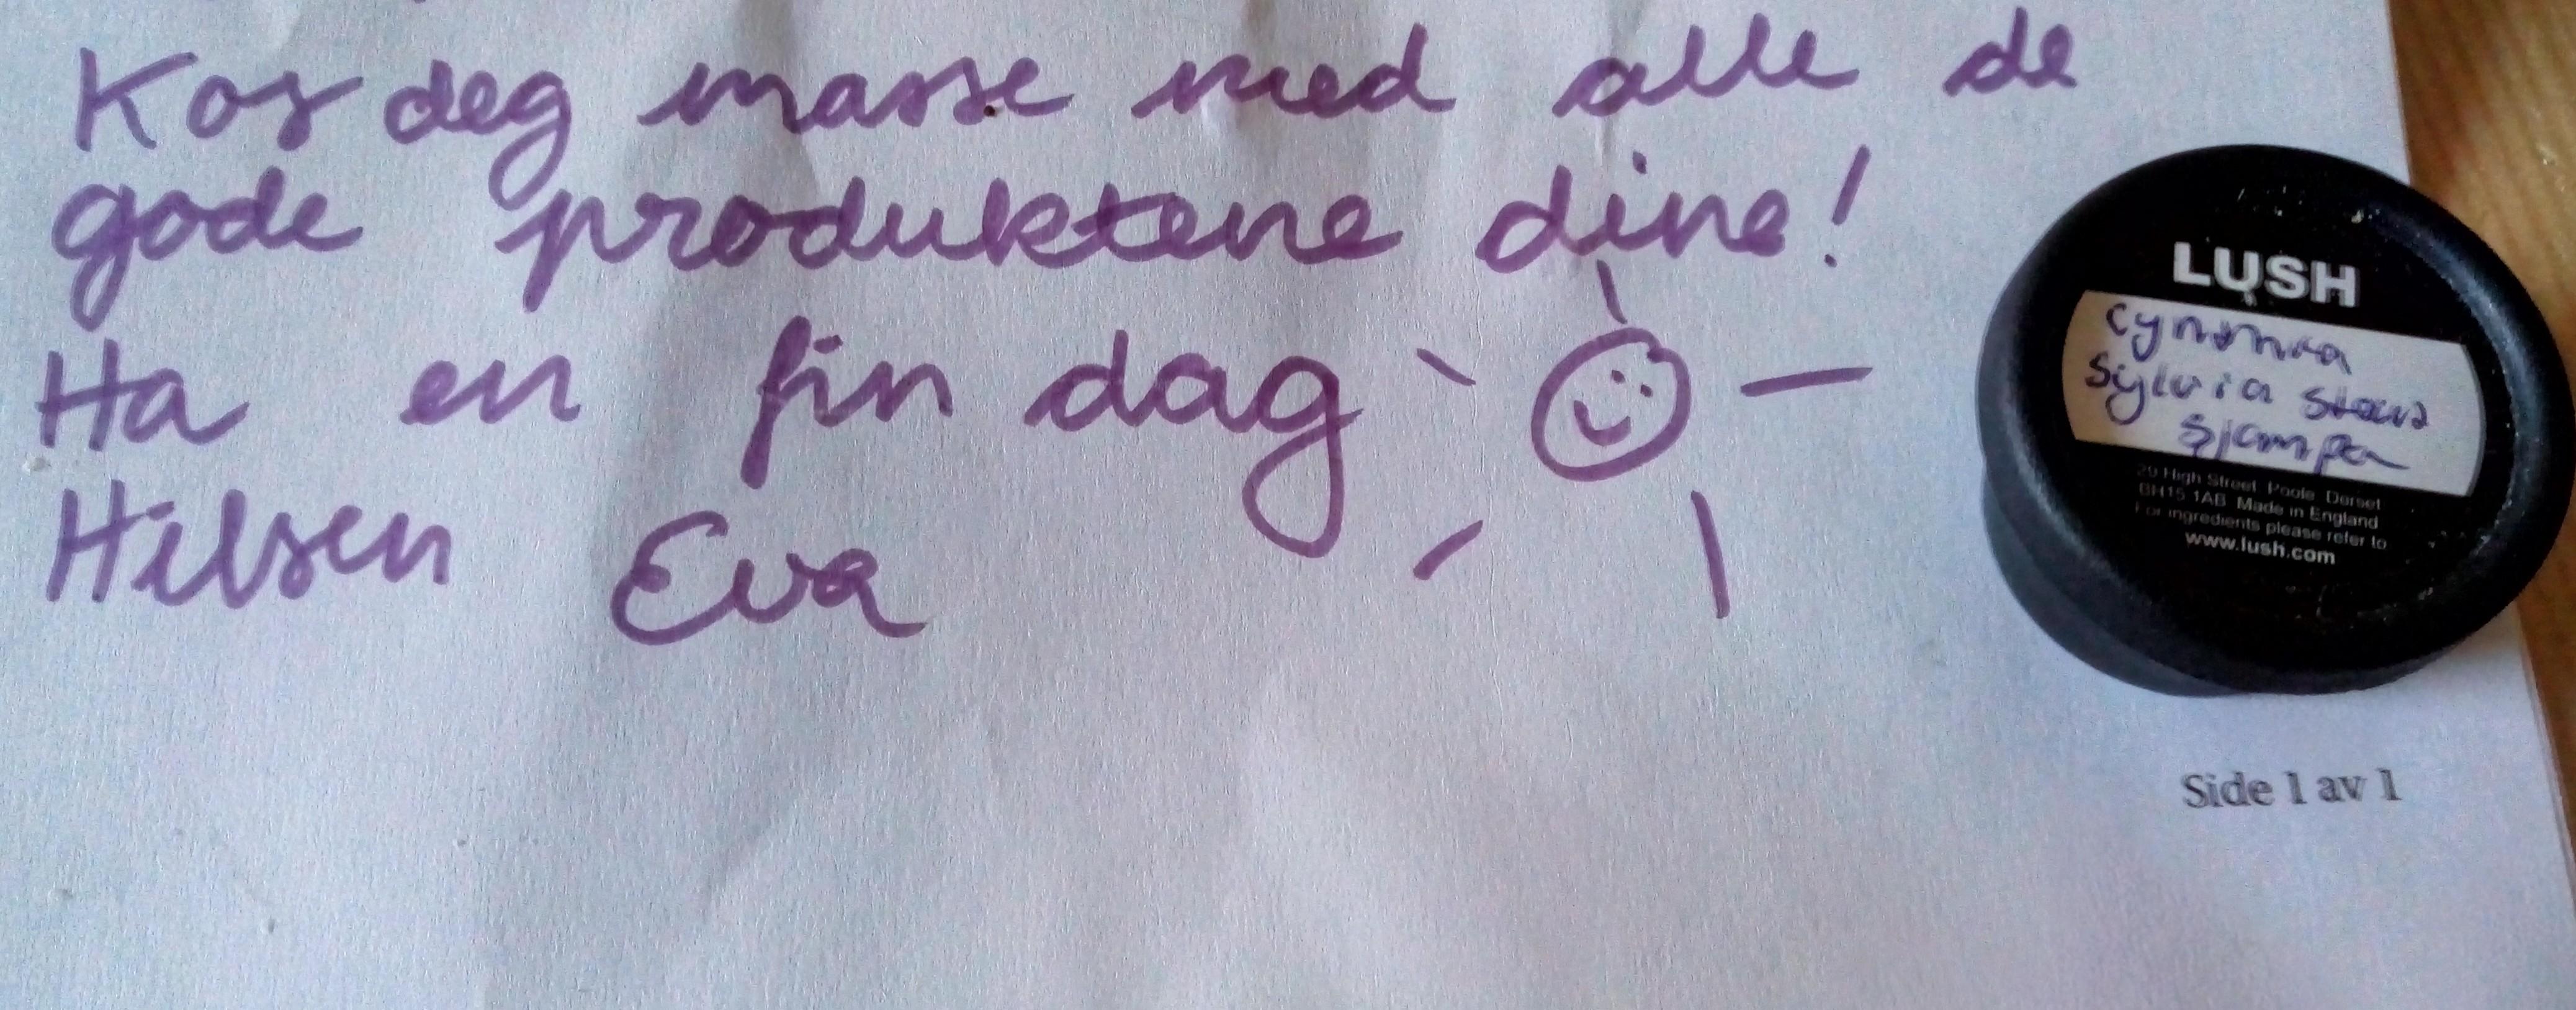 Kos deg masse med alle de
gode produktene dine!
Ha en fin dag
Hilsen Eva
LUSH
Cynthia
Sylvia Stout
Sjampo
29 High Street Poole Dorset
BH15 1AB Made in England
For ingredients please refer to
www.lush.com
Side 1 av 1